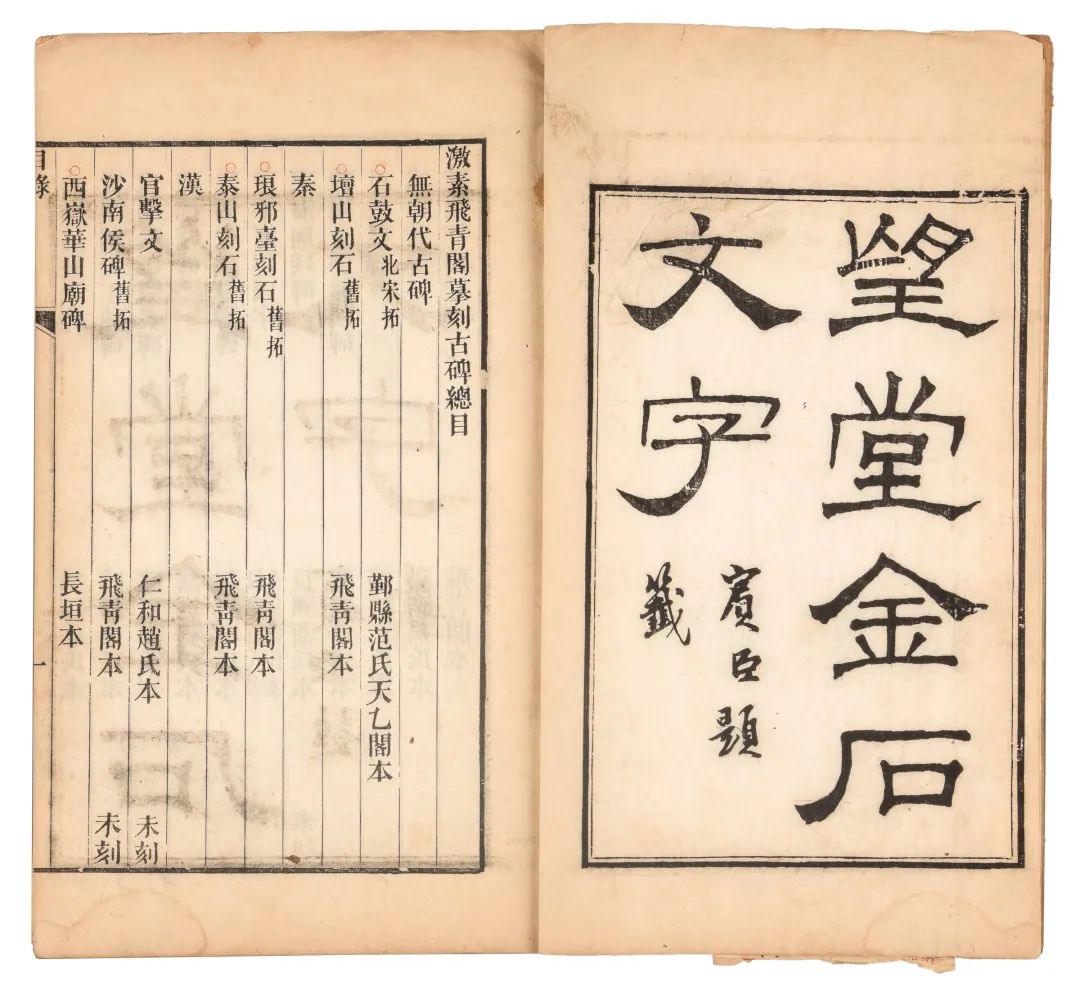 望堂金石
文字
賓臣題
籤
激素飛青閣摹刻古碑總目
無朝代古碑
石鼓文 北宋拓 鄞縣范氏天乙閣本
壇山刻石 舊拓 飛青閣本
秦
琅邪臺刻石 舊拓 飛青閣本
泰山刻石 舊拓 飛青閣本
漢
官擊文 仁和趙氏本 未刻
沙南侯碑 舊拓 飛青閣本 未刻
西嶽華山廟碑 長垣本
目錄
一